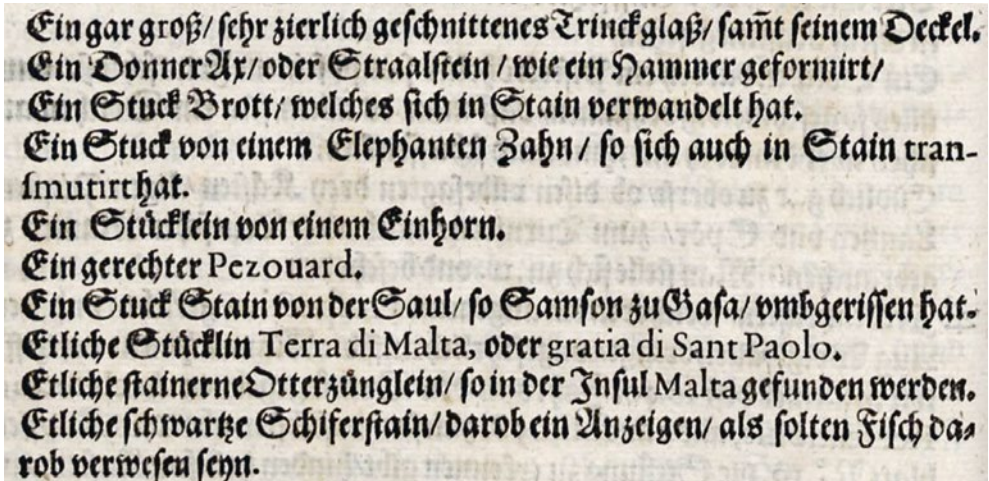 Ein gar groß/ sehr zierlich geschnittenes Trinckglaß/ sam̃t seinem Deckel.
Ein Donner Ax/ oder Straalstein / wie ein Hammer geformirt/
Ein Stuck Brott/ welches sich in Stain verwandelt hat.
Ein Stuck von einem Elephanten Zahn / so sich auch in Stain tran-
smutirt hat.
Ein Stücklein von einem Einhorn.
Ein gerechter Pezouard.
Ein Stuck Stain von der Saul/ so Samson zu Gasa/ vmbgerissen hat.
Etliche Stücklin Terra di Malta, oder gratia di Sant Paolo.
Etliche stainerne Otterzünglein/ so in der Insul Malta gefunden werden.
Etliche schwartze Schiferstain/ darob ein Anzeigen/ als solten Fisch da-
rob verwesen seyn.